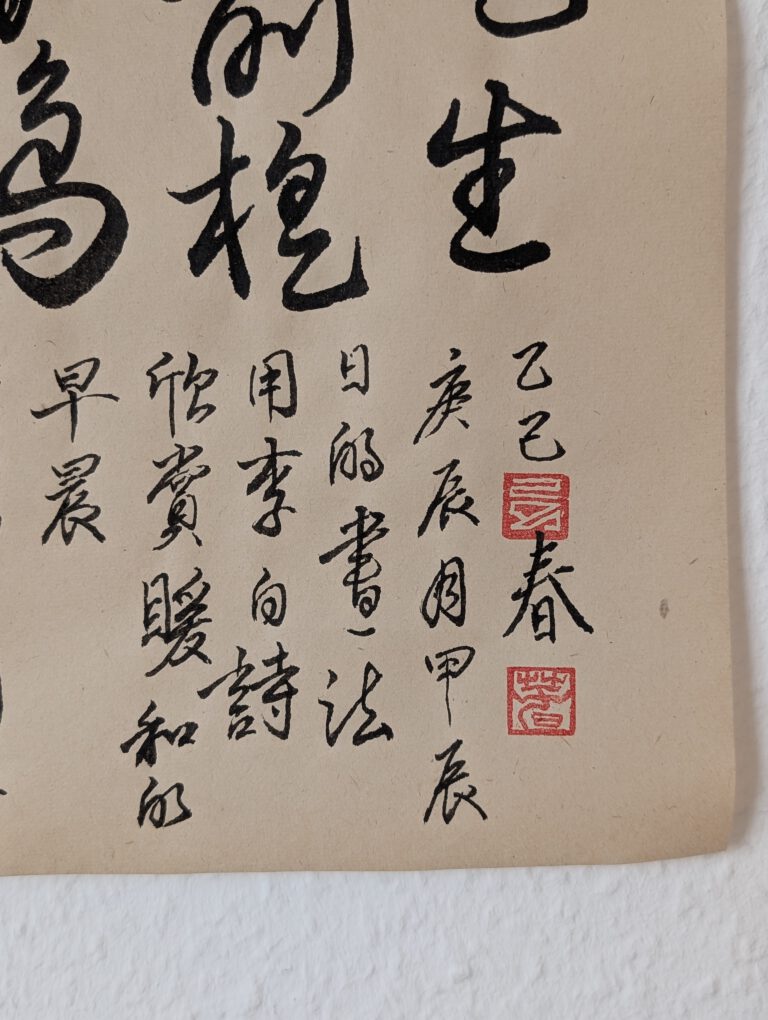 生
前楹
鳥
乙巳春
庚辰月甲辰
日的書法
用李白詩
欣賞暖和的
早晨